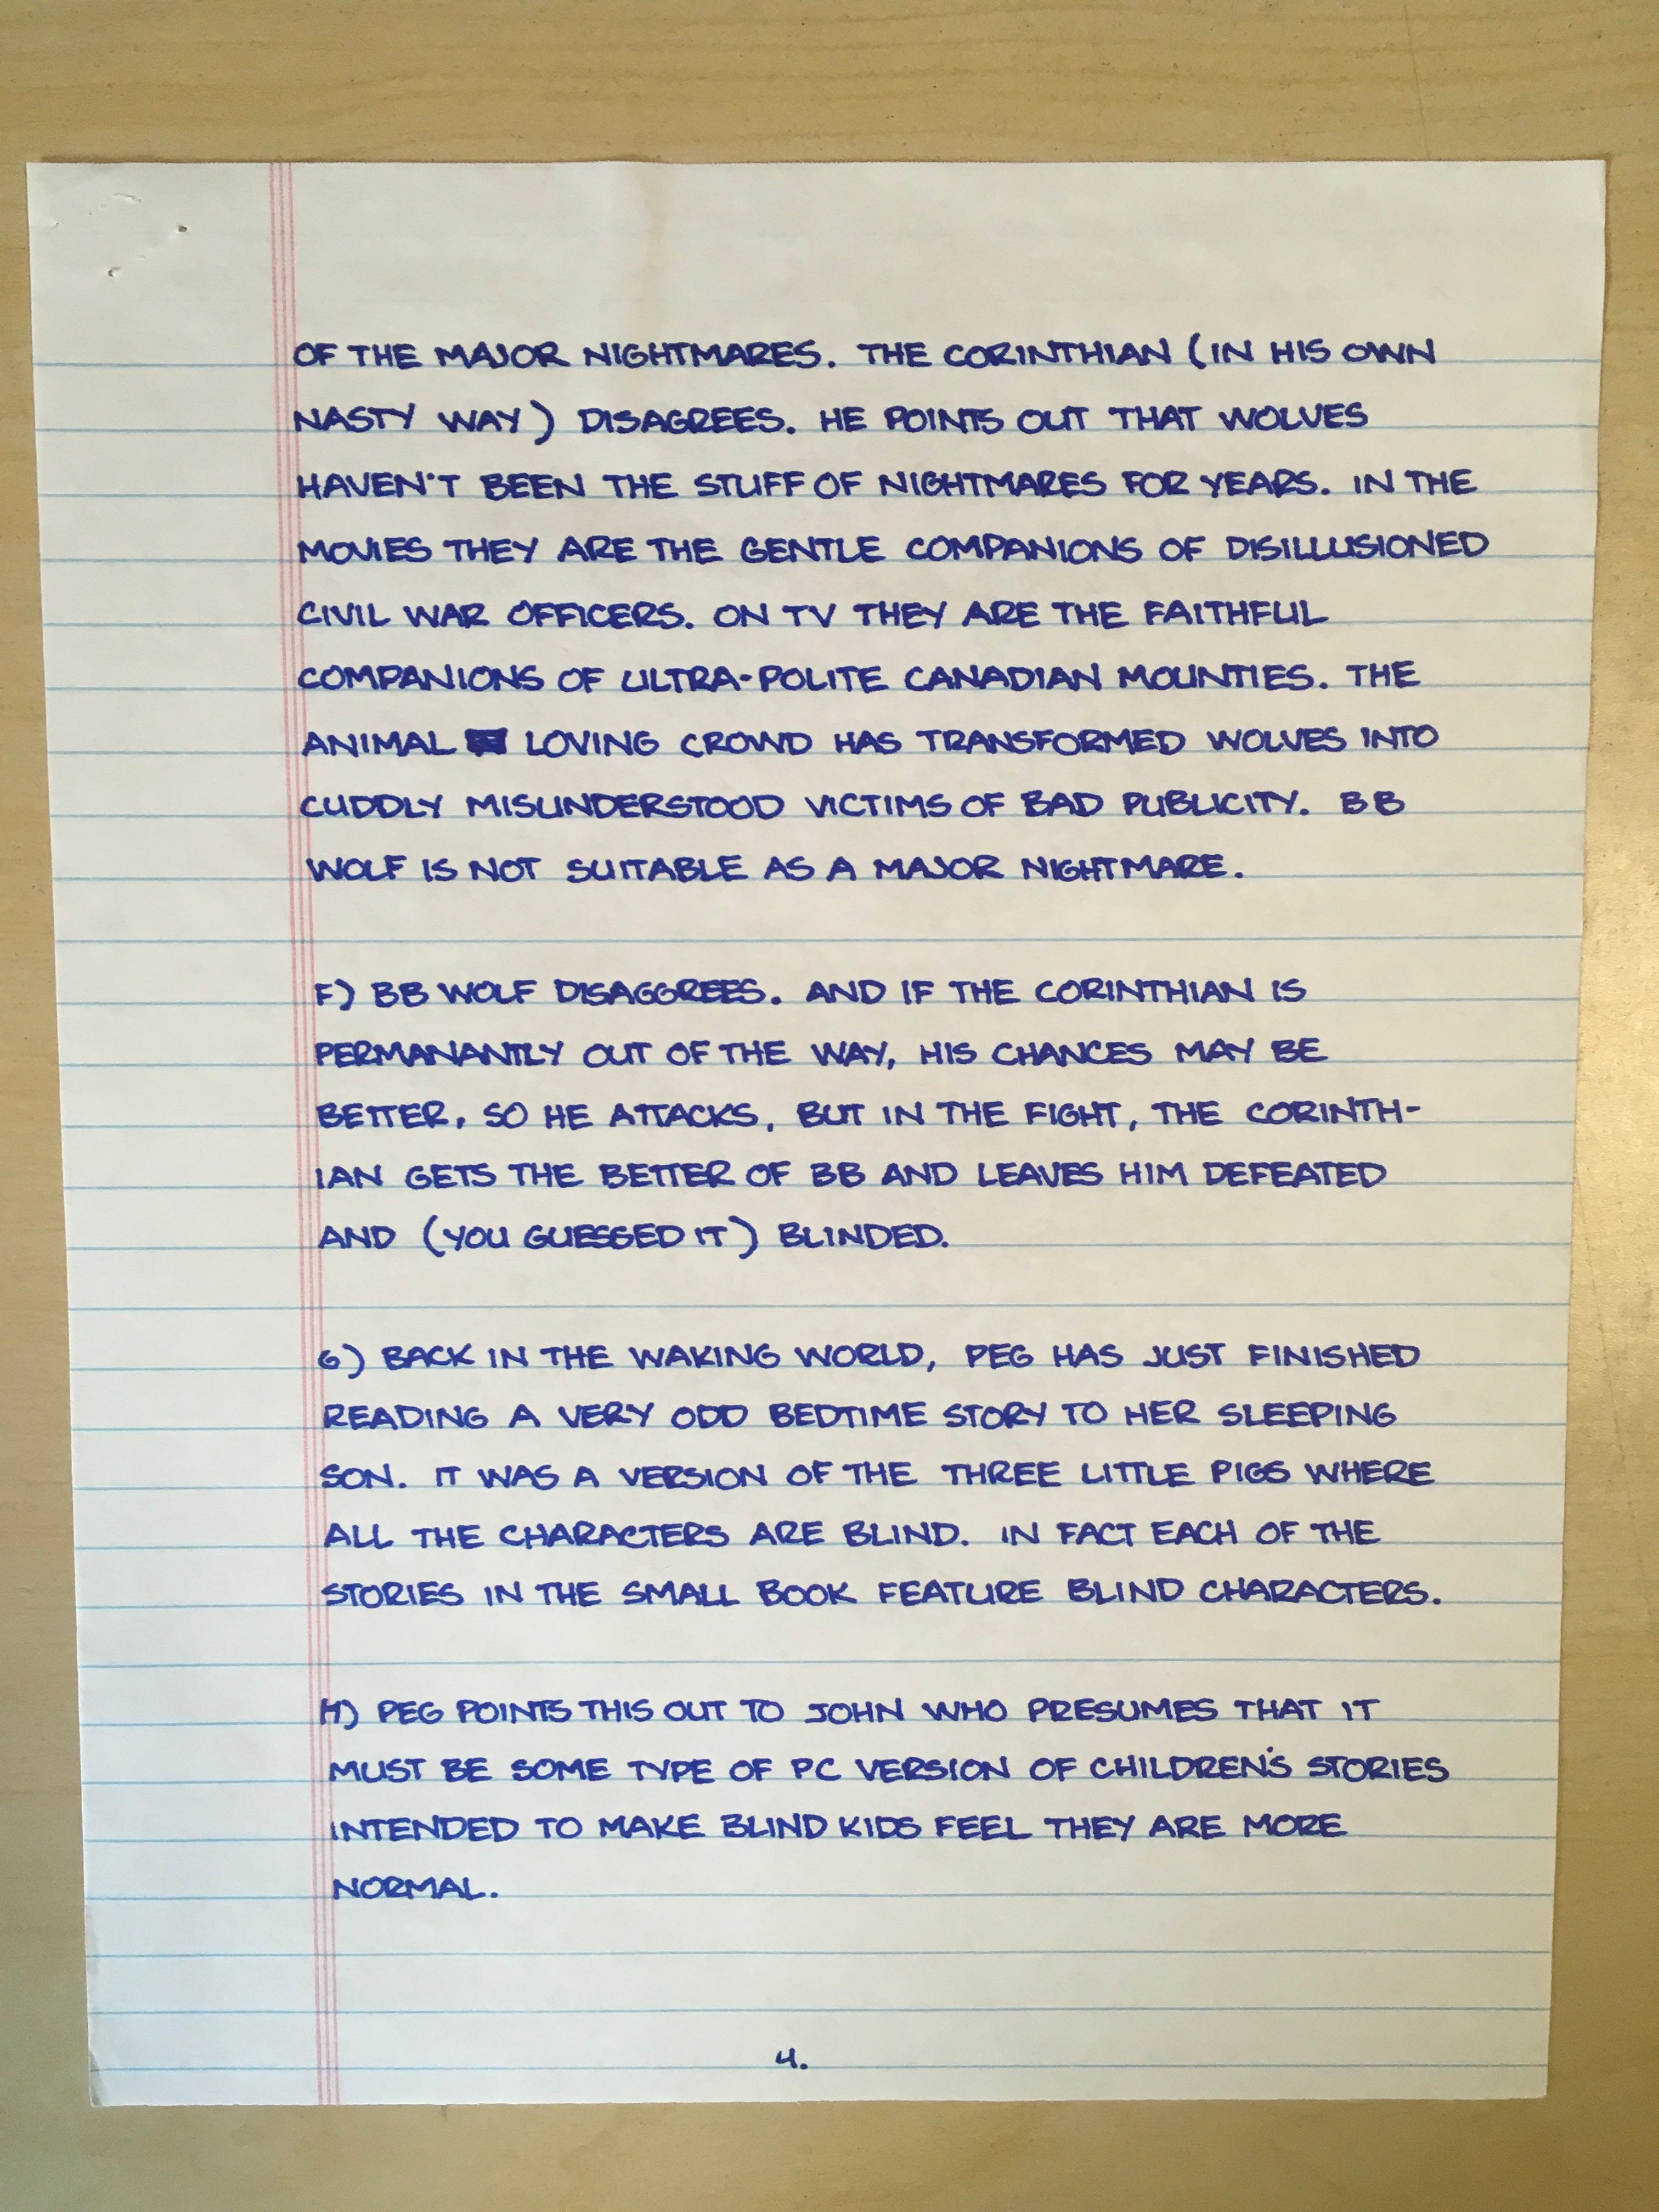 OF THE MAJOR NIGHTMARES. THE CORINTHIAN (IN HIS OWN
NASTY WAY) DISAGREES. HE POINTS OUT THAT WOLVES
HAVEN'T BEEN THE STUFF OF NIGHTMARES FOR YEARS. IN THE
MOVIES THEY ARE THE GENTLE COMPANIONS OF DISILLUSIONED
CIVIL WAR OFFICERS. ON TV THEY ARE THE FAITHFUL
COMPANIONS OF ULTRA-POLITE CANADIAN MOUNTIES. THE
ANIMAL LOVING CROWD HAS TRANSFORMED WOLVES INTO
CUDDLY MISUNDERSTOOD VICTIMS OF BAD PUBLICITY. BB
WOLF IS NOT SUITABLE AS A MAJOR NIGHTMARE.
F) BB WOLF DISAGGREES. AND IF THE CORINTHIAN IS
PERMANANTLY OUT OF THE WAY, HIS CHANCES MAY BE
BETTER. SO HE ATTACKS. BUT IN THE FIGHT, THE CORINTH-
IAN GETS THE BETTER OF BB AND LEAVES HIM DEFEATED
AND (YOU GUESSED IT) BLINDED.
G) BACK IN THE WAKING WORLD, PEG HAS JUST FINISHED
READING A VERY ODD BEDTIME STORY TO HER SLEEPING
SON. IT WAS A VERSION OF THE THREE LITTLE PIGS WHERE
ALL THE CHARACTERS ARE BLIND. IN FACT EACH OF THE
STORIES IN THE SMALL BOOK FEATURE BLIND CHARACTERS.
H) PEG POINTS THIS OUT TO JOHN WHO PRESUMES THAT IT
MUST BE SOME TYPE OF PC VERSION OF CHILDREN'S STORIES
INTENDED TO MAKE BLIND KIDS FEEL THEY ARE MORE
NORMAL.
4.